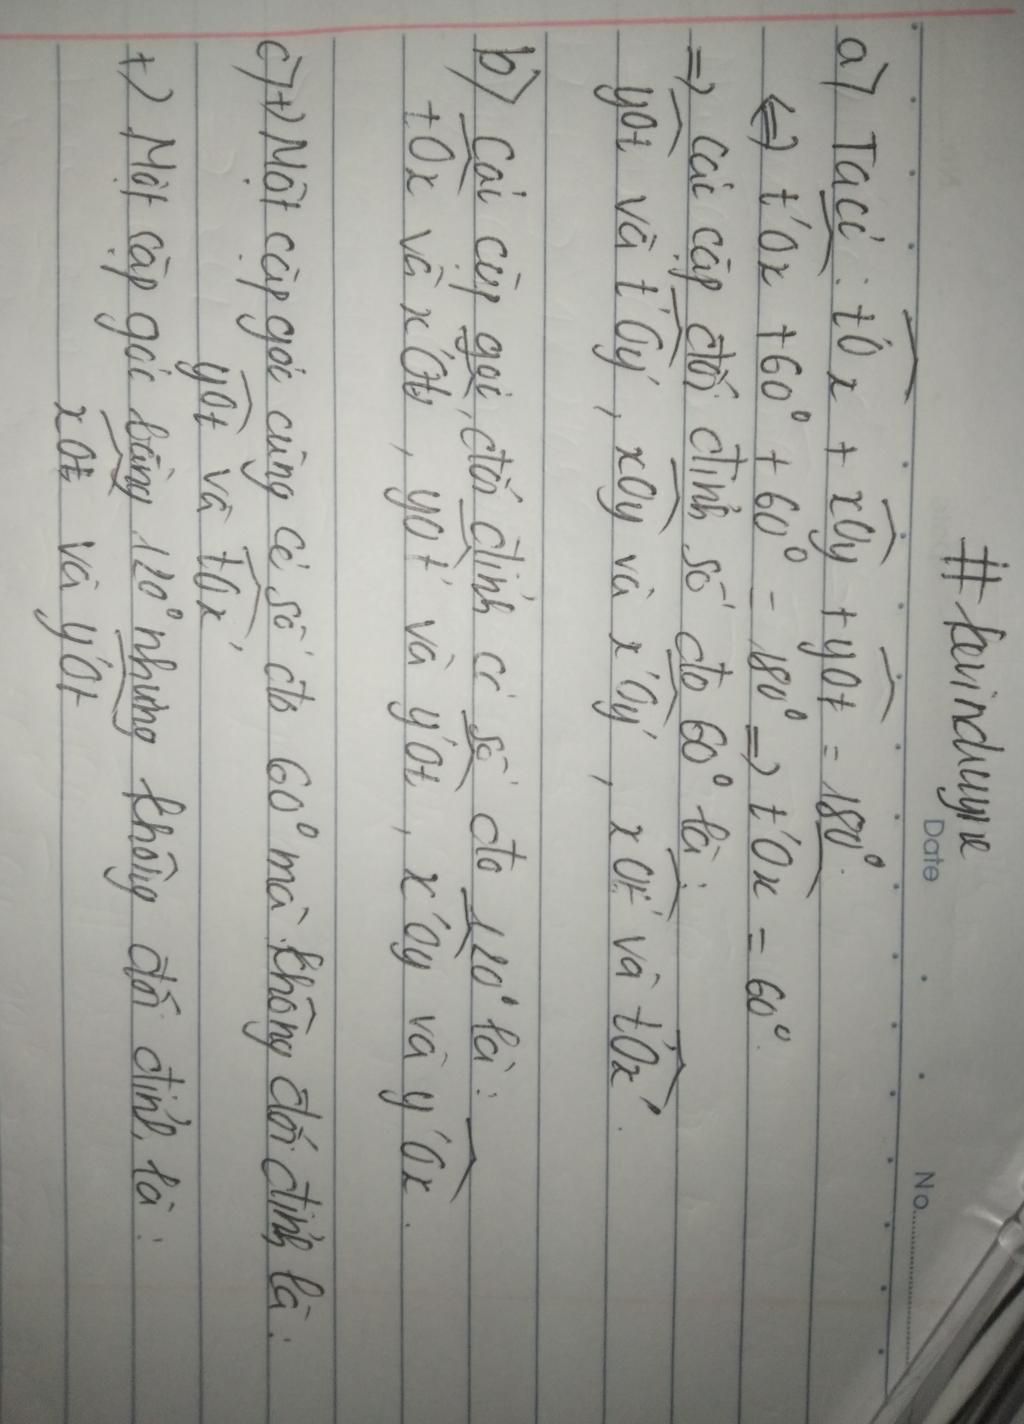 #kevinduyne
Date
No.
a) Ta có: t'Ox + xOy + yOt = 180°.
<=> t'Ox + 60° + 60° = 180° => t'Ox = 60°.
=> Cái cặp đối đỉnh số đo 60° là:
yOt và t'Oy', xOy và x'Oy', xOt' và tOx'.
b) Cái cặp gói đối đỉnh có số đo 120° là:
tOx và x'Ot', yOt' và y'Ot, x'Oy và y'Ox.
c) +) Một cặp gói cùng có số đo 60° mà không đối đỉnh là:
yOt và tOx'
+) Một cặp góc bằng 120° nhưng không đối đỉnh là:
xOt và y'Ot